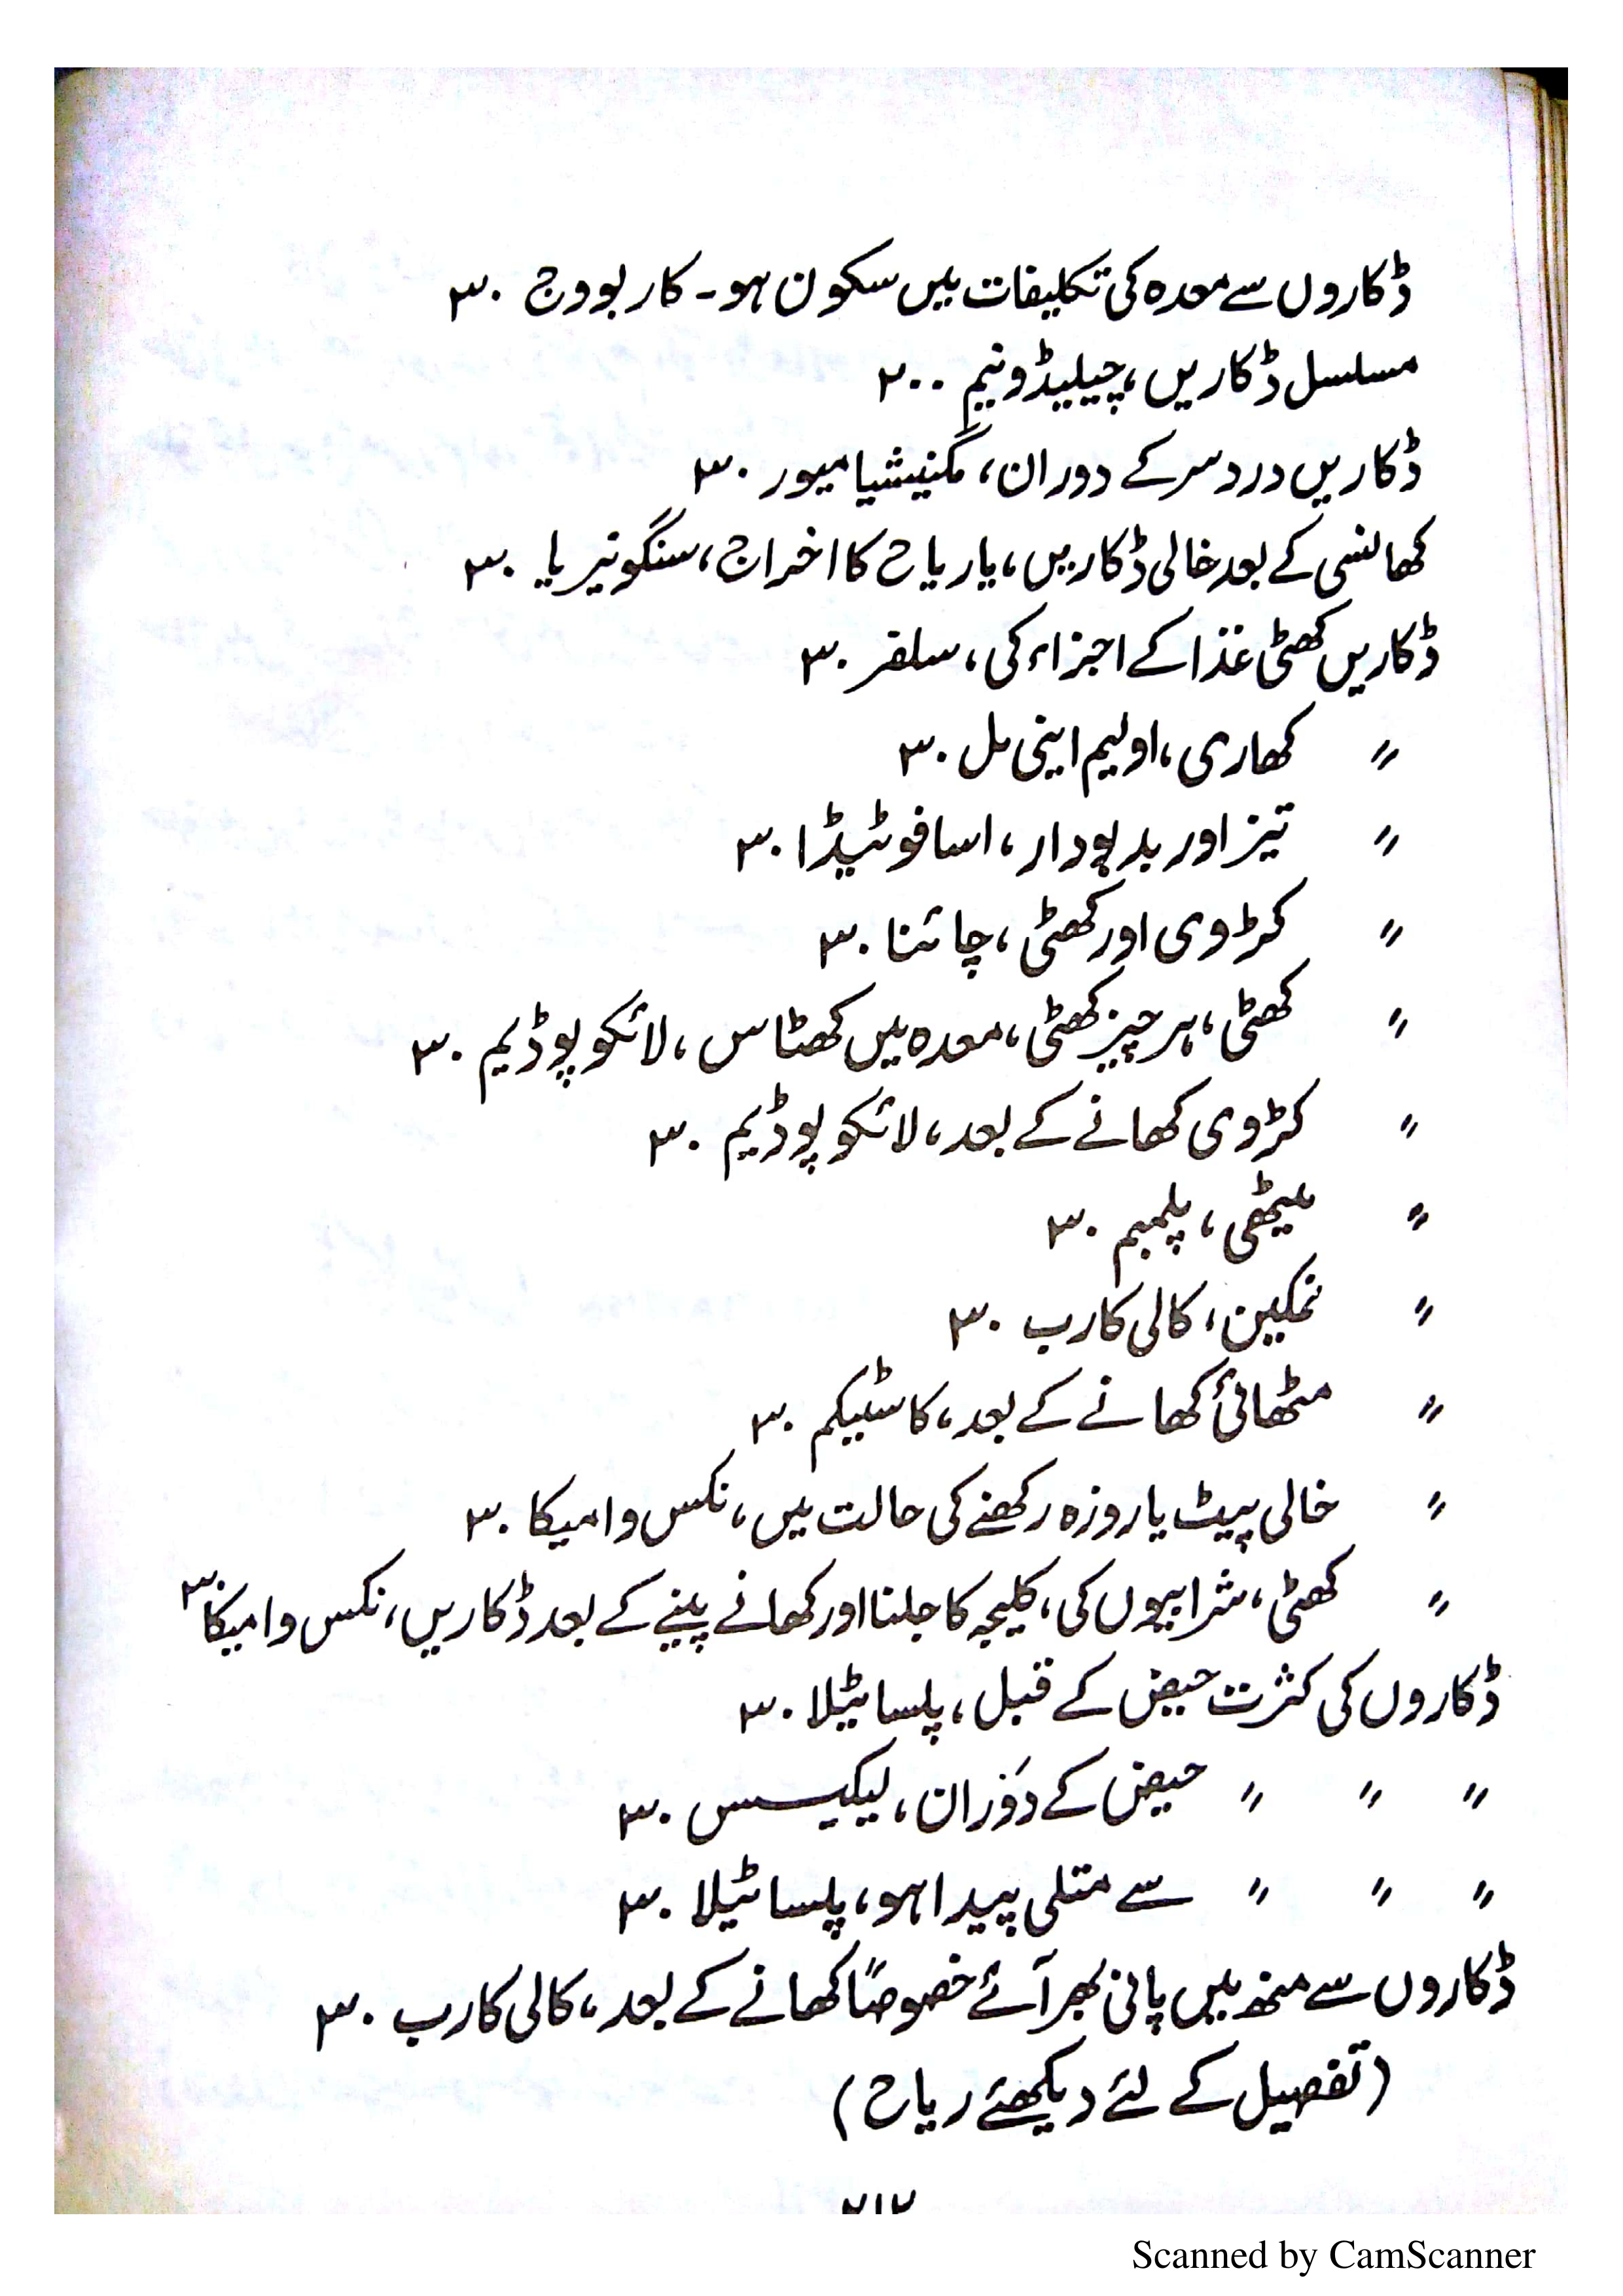 ڈکاروں سے معدہ کی تکلیفات میں سکون ہو۔ کاربو وج ۳۰
مسلسل ڈکاریں، چیلیڈونیم ۲۰۰
ڈکاریں درد سر کے دوران، مگنیشیا میور ۳۰
کھانسی کے بعد خالی ڈکاریں، یا ریاح کا اخراج، سنگونیریا ۳۰
ڈکاریں کھٹی غذا کے اجزاء کی، سلفر ۳۰
〃 کھاری، اولیم اینی مل ۳۰
〃 تیز اور بدبودار، اسافوٹیڈا ۳۰
〃 کڑوی اور کھٹی، چائنا ۳۰
〃 کھٹی، ہر چیز کھٹی، معدہ میں کھٹاس، لائکوپوڈیم ۳۰
〃 کڑوی کھانے کے بعد، لائکوپوڈیم ۳۰
〃 میٹھی، پلمبم ۳۰
〃 نمکین، کالی کارب ۳۰
〃 مٹھائی کھانے کے بعد، کاسٹیکم ۳۰
〃 خالی پیٹ یا روزہ رکھنے کی حالت میں، نکس وامیکا ۳۰
〃 کھٹی، شرابیوں کی، کلیجہ کا جلنا اور کھانے پینے کے بعد ڈکاریں، نکس وامیکا ۳۰
ڈکاروں کی کثرت حیض کے قبل، پلساٹیلا ۳۰
〃 〃 〃 حیض کے دَوران، لیکیسس ۳۰
〃 〃 〃 سے متلی پیدا ہو، پلساٹیلا ۳۰
ڈکاروں سے منھ میں پانی بھر آئے خصوصاً کھانے کے بعد، کالی کارب ۳۰
(تفصیل کے لئے دیکھئے ریاح)
۲۱۲
Scanned by CamScanner